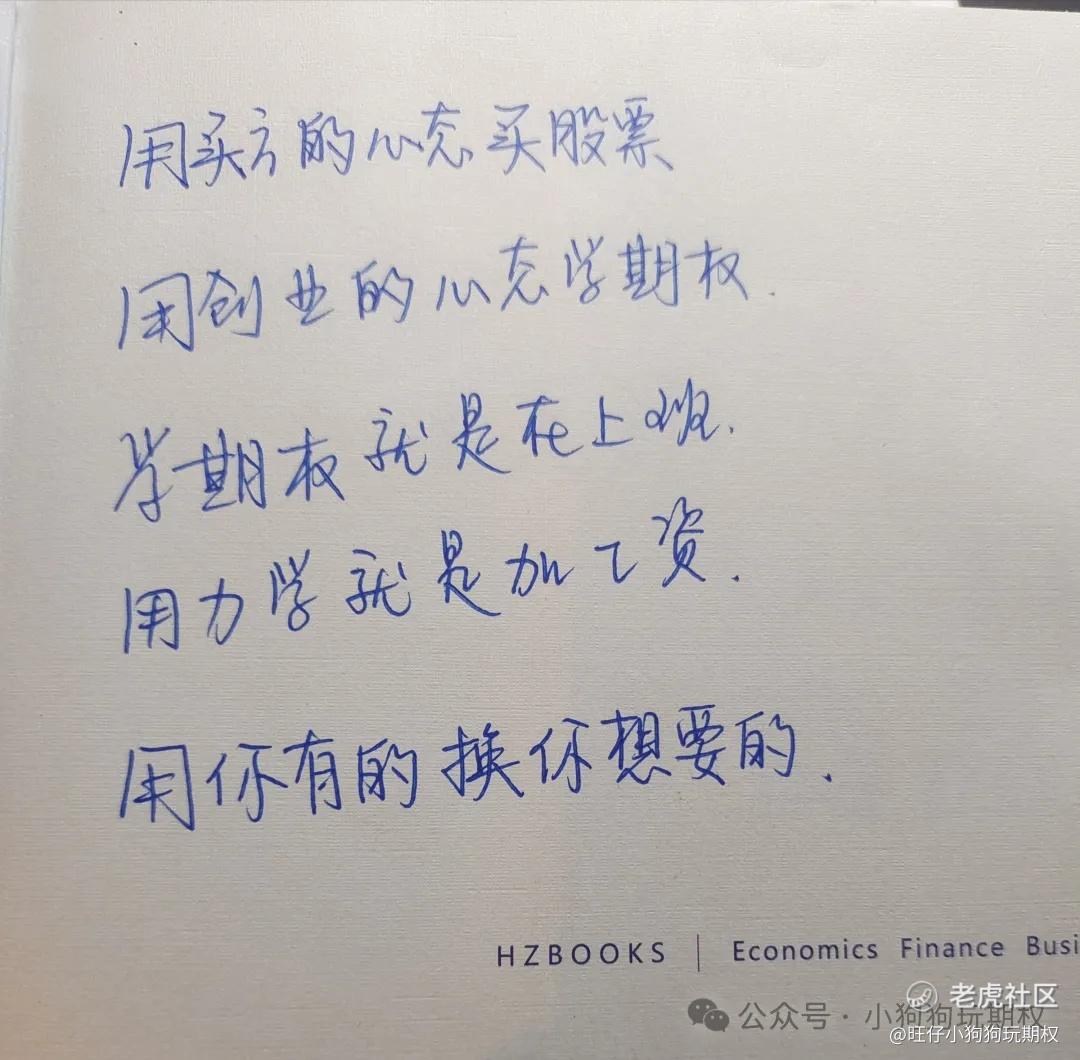 用买方的心态买股票
用创业的心态学期权.
学期权就是在上班.
用力学就是加工资.
用你有的换你想要的.
HZBOOKS | Economics Finance Busi
老虎社区
公众号·小狗狗玩期权
@旺仔小狗狗玩期权